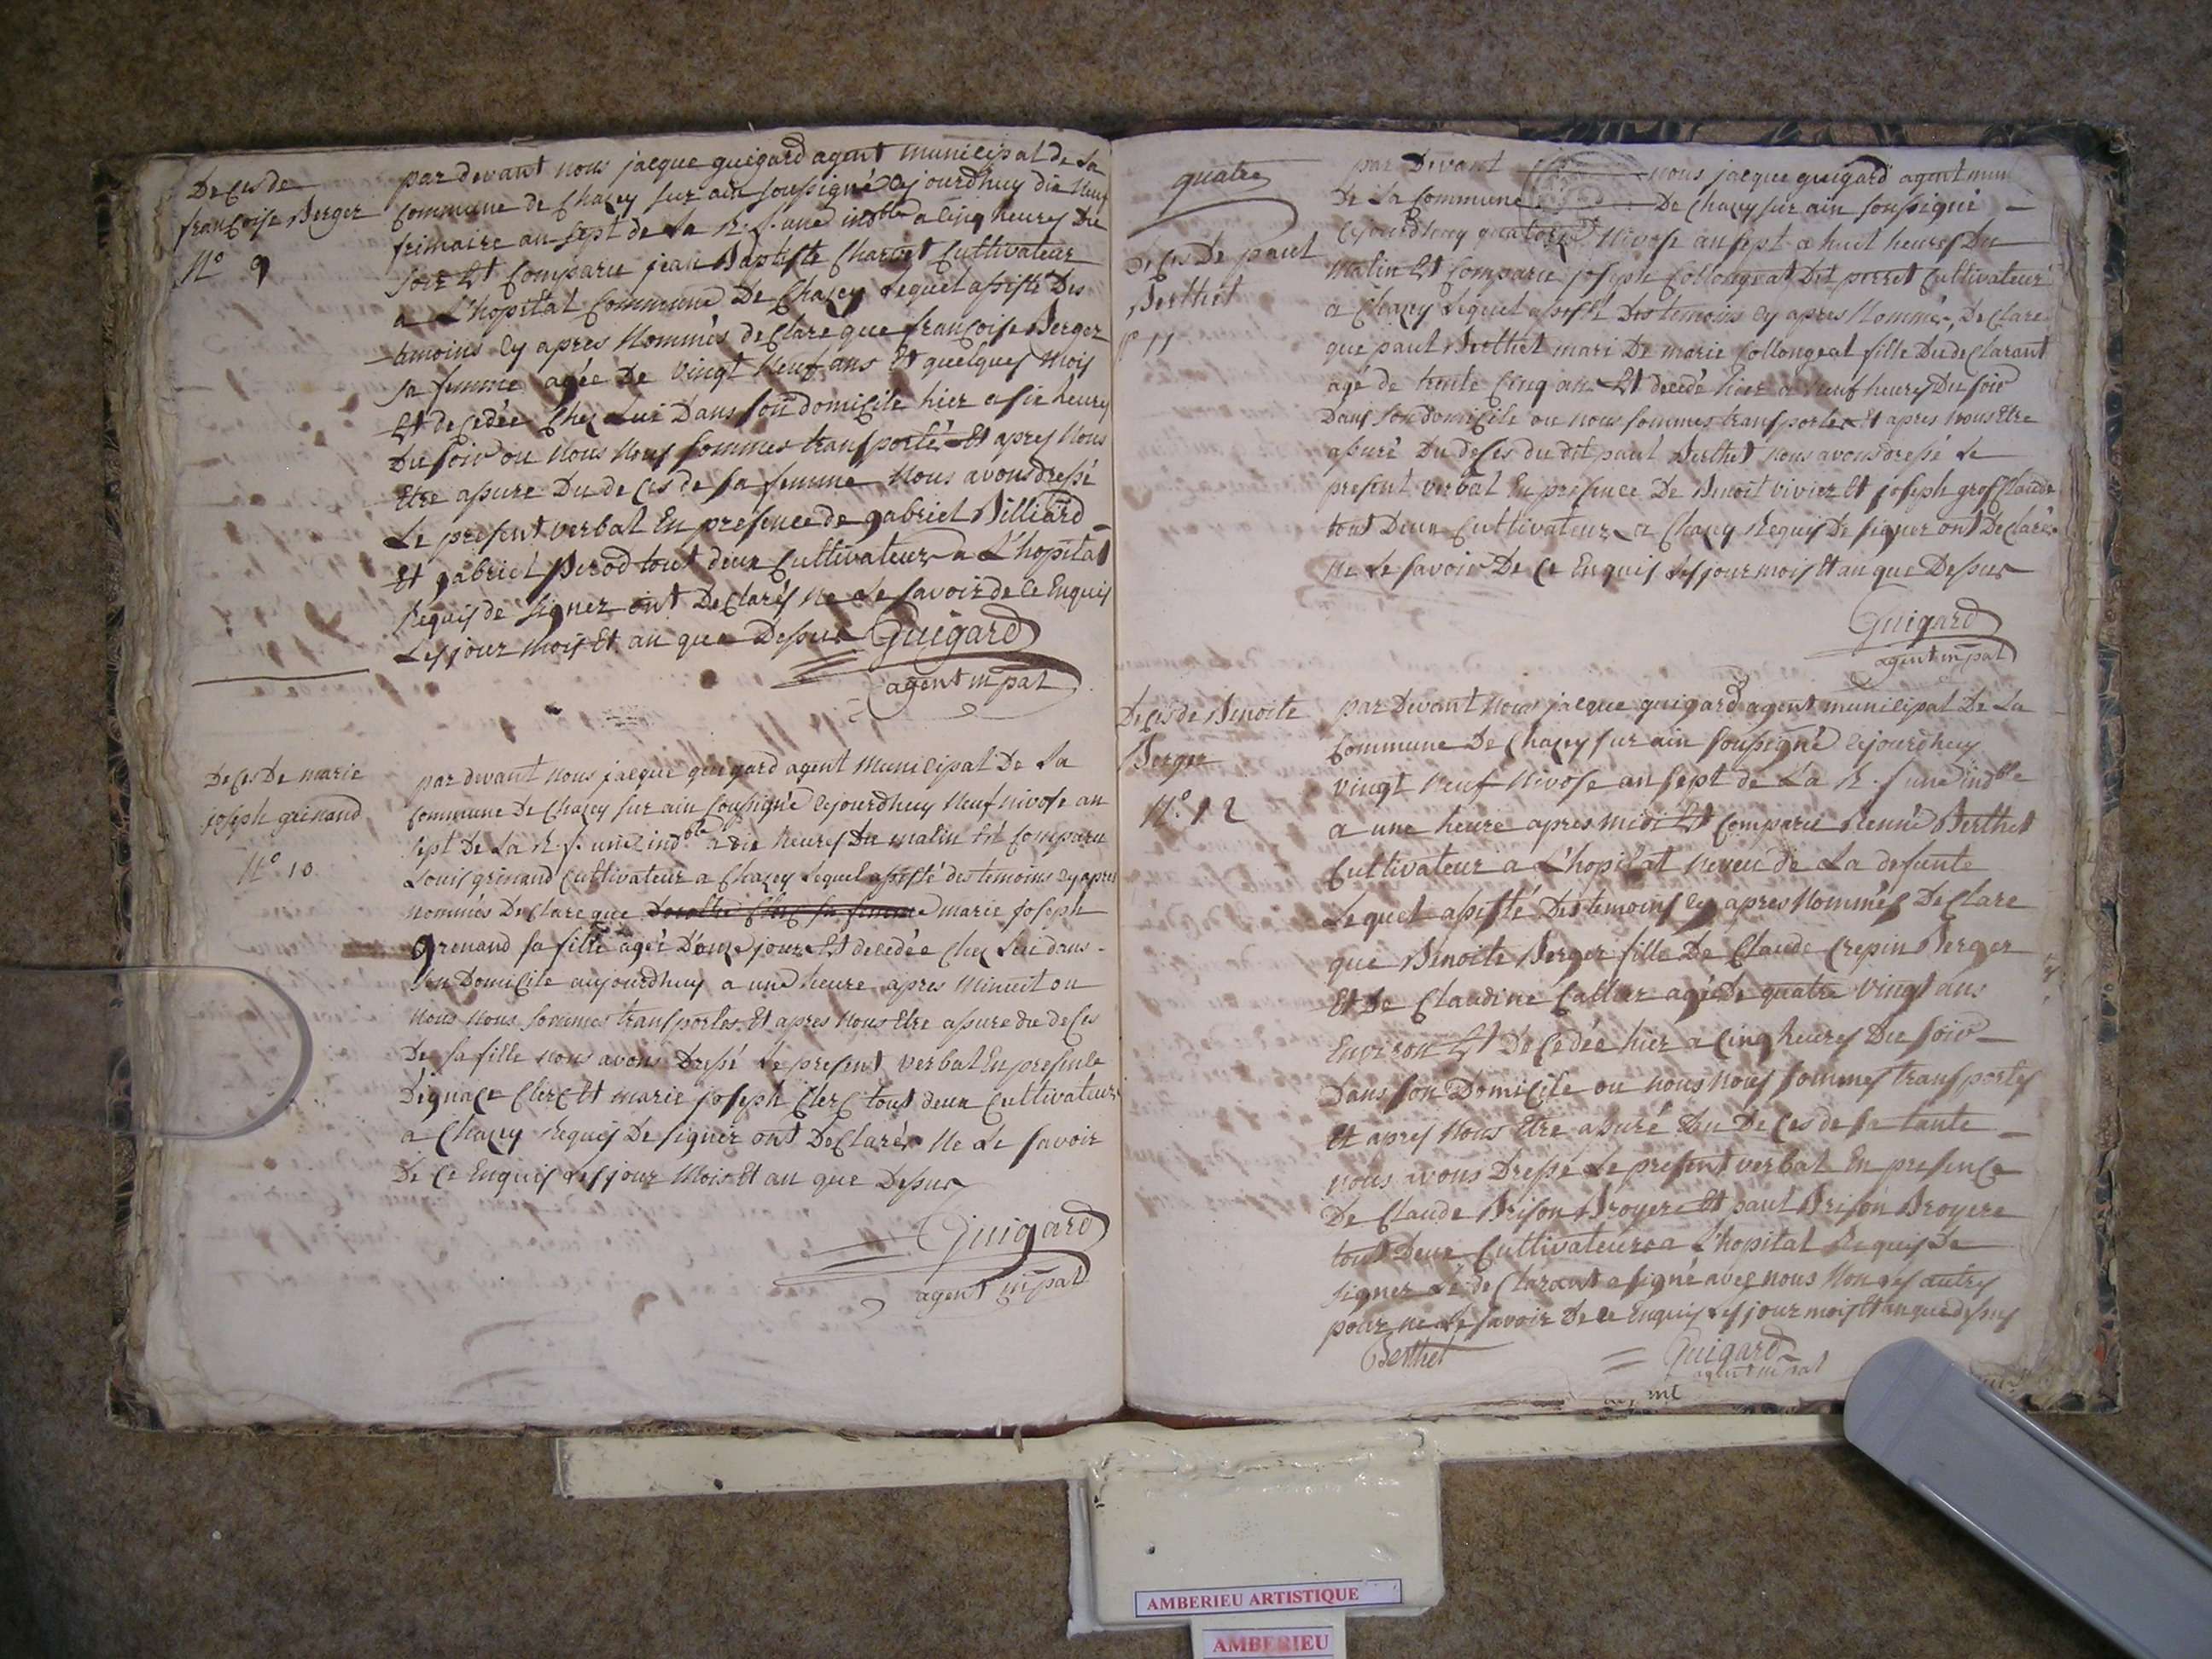 Deces de
francoise Berger
N° 9
par devant nous jacque guigard agent municipal de La
Commune de Chazey sur ain soussigné cejourdhuy dix neuf
frimaire an sept de La R. f. une indble a cinq heures Du
soir Est Comparu jean Baptiste Charvet Cultivateur
a L'hopital Commune De Chazey Lequel assisté Des
temoins cy apres Nommés declare que francoise Berger
sa femme agée De vingt Neuf ans Et quelques Mois
Est decedée Chez Lui Dans son domicile hier a six heures
Du soir ou Nous Nous sommes transporté Et apres Nous
Etre assure Du deces de sa femme Nous avons dressé
Le present verbal En presence de gabriel Billiard
Et gabriel Perod tout deux Cultivateur a L'hopital
Requis de signer ont Declarés Ne Le savoir de ce Enquis
Les jour Mois Et an que Dessus Guigard
agent mpal
Deces De marie
joseph grenand
N° 10
par devant nous jacque guigard agent Municipal De La
Commune De Chazey sur ain soussigné cejourdhuy Neuf nivose an
sept De La R. f. une indble a dix heures Du matin Est Comparu
Louis grenand Cultivateur a Chazey Lequel assisté des temoins cy apres
nommés Declare que marie joseph
grenand sa fille agée D'onze jours Est decedée Chez Lui dans
son Domicile aujourdhuy a une heure apres Minuit ou
nous nous sommes transportes Et apres Nous Etre assure du deces
De sa fille nous avons Dressé Le present verbal En presence
D'ignace Clerc Et marie joseph Clerc tout deux Cultivateurs
a Chazey Requis De signer ont Declarés Ne Le savoir
De ce Enquis Les jour Mois Et an que Dessus
Guigard
agent mpal
quatre
Deces De paul
Berthet
N° 11
par Devant nous jacque guigard agent mun
De La Commune De Chazey sur ain soussigné
cejourdhuy quatorze Nivose an sept a huit heures Du
Matin Est Comparu joseph Collongeat Dit perret Cultivateur
a Chazey Lequel assisté Des temoins cy apres Nommés, Declare
que paul Berthet mari De marie Collongeat fille Du declarant
agé de trente Cinq ans Est decedé hier a Neuf heures Du soir
Dans son domicile ou nous sommes transportes Et apres nous Etre
assuré Du deces du dit paul Berthet nous avons dressé Le
present verbal En presence De Benoit vivier Et joseph gros Claude
tout Deux Cultivateurs a Chazey Requis De signer ont Declarés
Ne Le savoir De Ce Enquis Les jour mois Et an que Dessus
Guigard
agent mpal
Deces de Benoite
Berger
N° 12
par Devant Nous jacque guigard agent municipal De La
Commune De Chazey sur ain soussigné cejourdhuy
vingt Neuf Nivose an sept de La R. f une indble
a une heure apres midi Est Comparu Berthet
Cultivateur a L'hopital Neveu de La defunte
Lequel assisté Des temoins cy apres Nommés Declare
que Benoite Berger fille De Claude Crepin Berger
Et De Claudine agée de quatre vingt ans
Environ Est Decedée hier a Cinq heures Du soir
Dans son Domicile ou nous Nous sommes transportes
Et apres Nous Etre assuré Du Deces de sa tante
nous avons Dressé Le present verbal En presence
De Claude Brison Broyere Et paul Brison Broyere
tout Deux Cultivateurs a L'hopital Requis De
signer Le declarant a signé avec nous Non Les autres
pour ne Le savoir De ce Enquis Les jour mois Et an que dessus
Berthet Guigard
agent mpal
AMBERIEU ARTISTIQUE
AMBERIEU